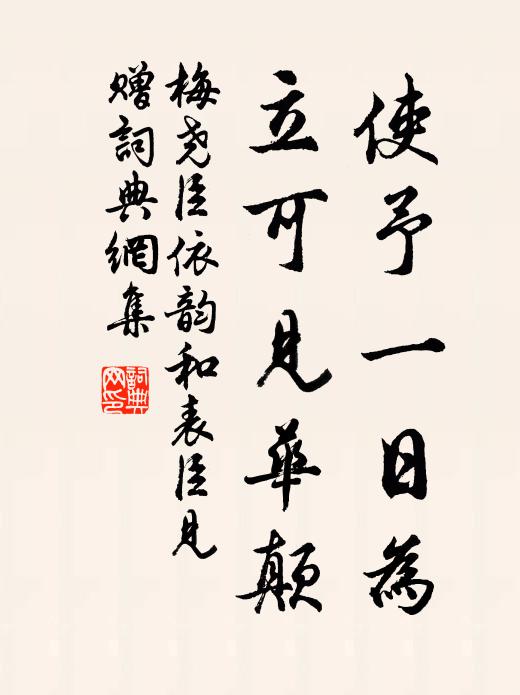 使予一日為
立可見華顛
梅尧臣依韵和表臣見
贈詞典網集
詞典网印